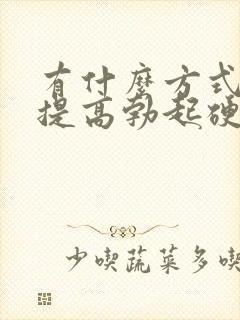 有什麼方式
提高勃起硬
少喫蔬菜多喫